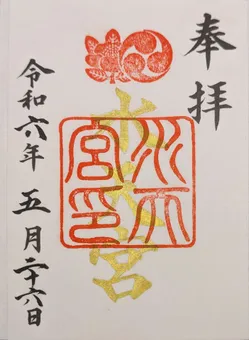 奉拝
水天宮
水天
宮印
令和六年 五月二十六日